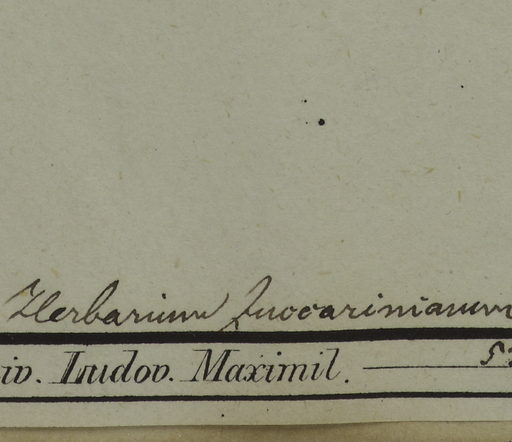 Herbarium Zuccarinianum
iv. Ludov. Maximil.